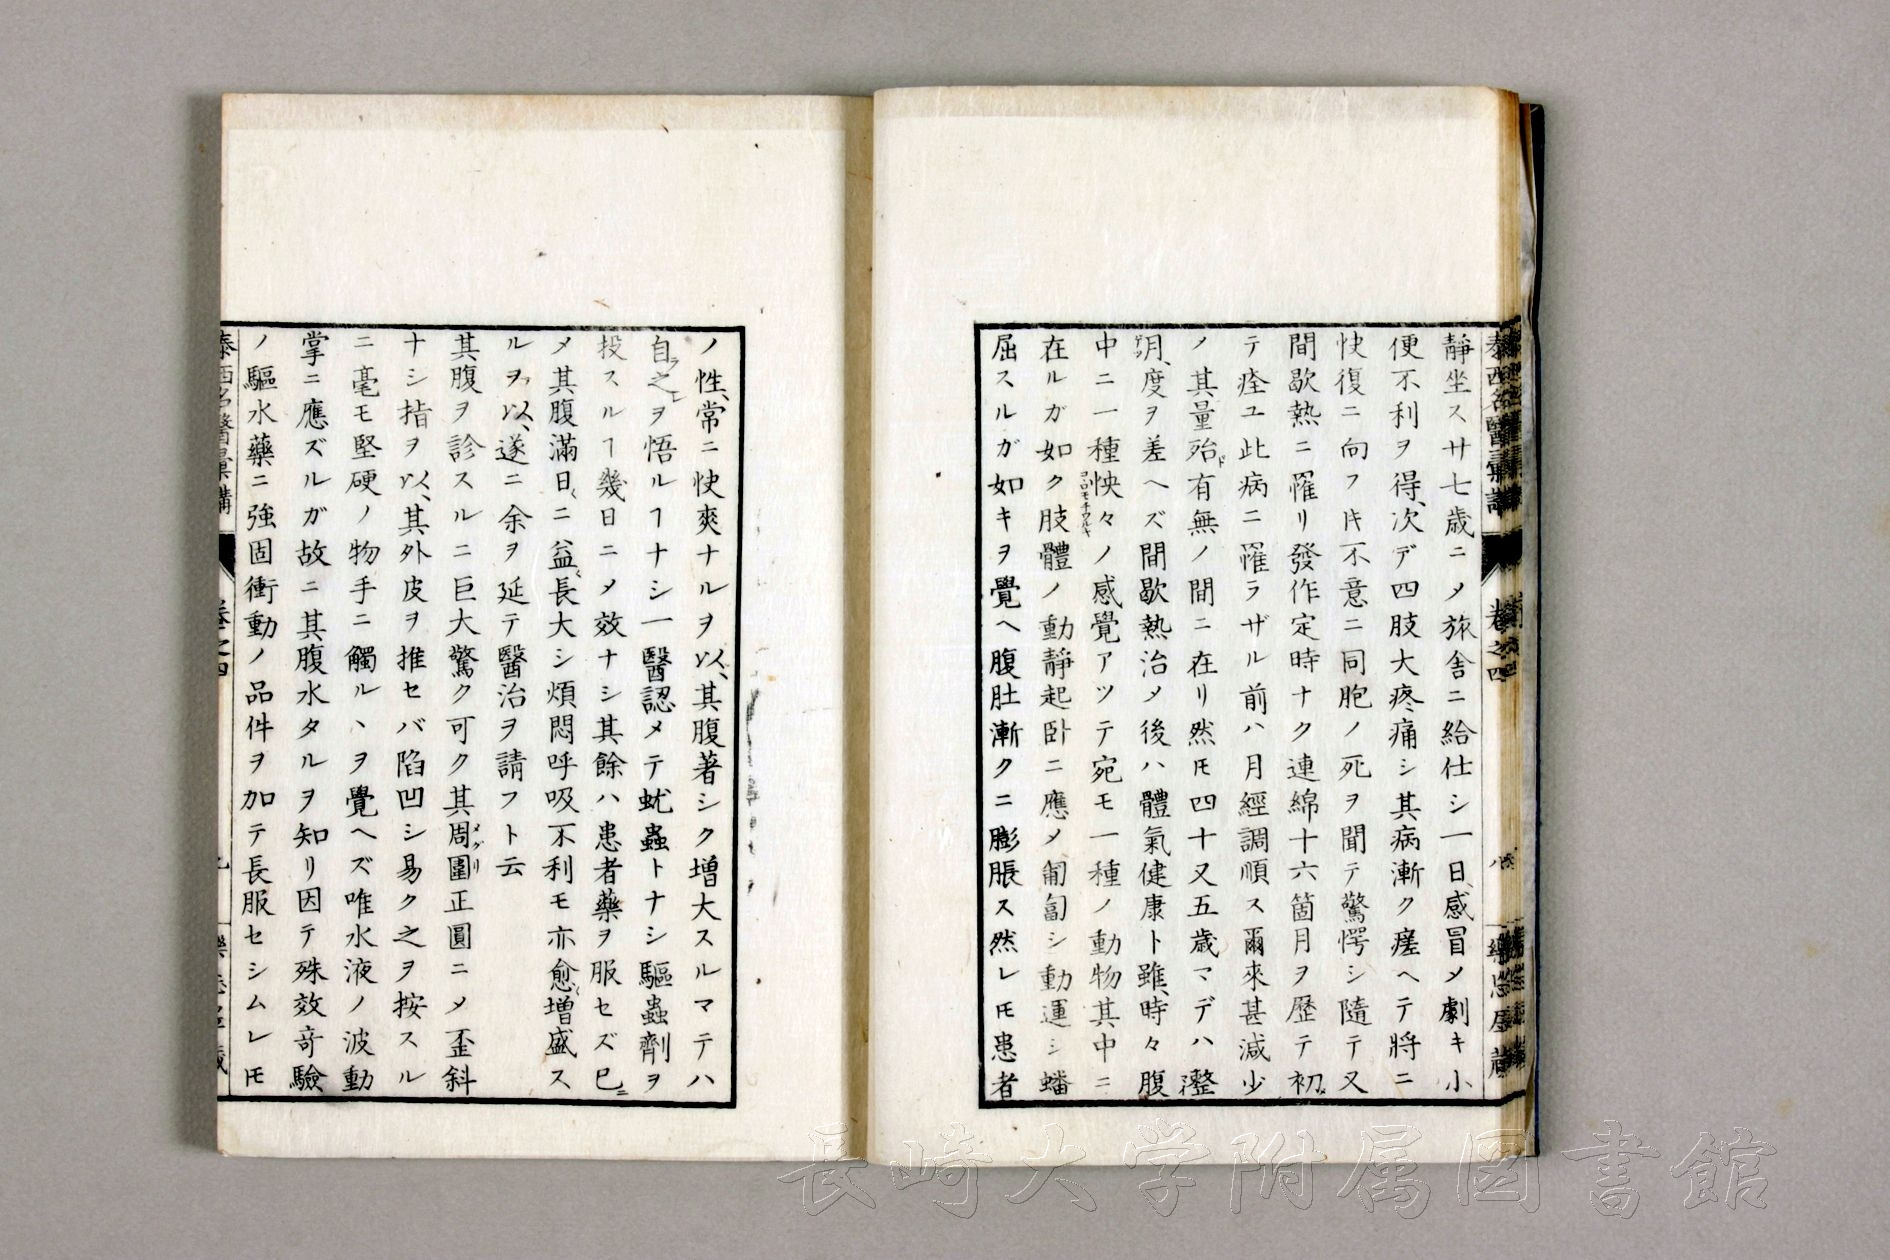 泰西名醫彙講
卷之四
八
靜坐ス廿七歳ニメ旅舎ニ給仕シ一日感冒メ劇キ小
便不利ヲ得、次デ四肢大疼痛シ其病漸ク瘥ヘテ將ニ
快復ニ向フ𪜈不意ニ同胞ノ死ヲ聞テ驚愕シ隨テ又
間歇熱ニ罹リ發作定時ナク連綿十六箇月ヲ歴テ初
テ痊ユ此病ニ罹ラザル前ハ月經調順ス爾來甚減少
ノ其量殆ド有無ノ間ニ在リ然𪜈四十又五歳マデハ瀅
月、度ヲ差ヘズ間歇熱治メ後ハ體氣健康ト雖、時々腹
中ニ一種怏々ノ感覺アツテ宛モ一種ノ動物其中ニ
在ルガ如ク肢體ノ動靜起卧ニ應メ匍匐シ動運シ蟠
屈スルガ如キヲ覺ヘ腹肚漸クニ膨脹ス然レ𪜈患者
ノ性、常ニ快爽ナルヲ以、其腹著シク増大スルマテハ
自之ヲ悟ルヿナシ一醫認メテ蚘蟲トナシ驅蟲劑ヲ
投スルヿ幾日ニメ效ナシ其餘ハ患者藥ヲ服セズ已ニ
メ其腹滿日ニ益長大シ煩悶呼吸不利モ亦愈増盛ス
ルヲ以、遂ニ余ヲ延テ醫治ヲ請フト云
其腹ヲ診スルニ巨大驚ク可ク其周圍正圓ニメ歪斜
ナシ指ヲ以、其外皮ヲ推セバ陷凹シ易ク之ヲ按スル
ニ毫モ堅硬ノ物手ニ觸ルヽヲ覺ヘズ唯水液ノ波動
掌ニ應ズルガ故ニ其腹水タルヲ知リ因テ殊效竒驗
ノ驅水藥ニ強固衝動ノ品件ヲ加テ長服セシムレ𪜈
泰西名醫彙講
卷之四
長崎大学附属図書館